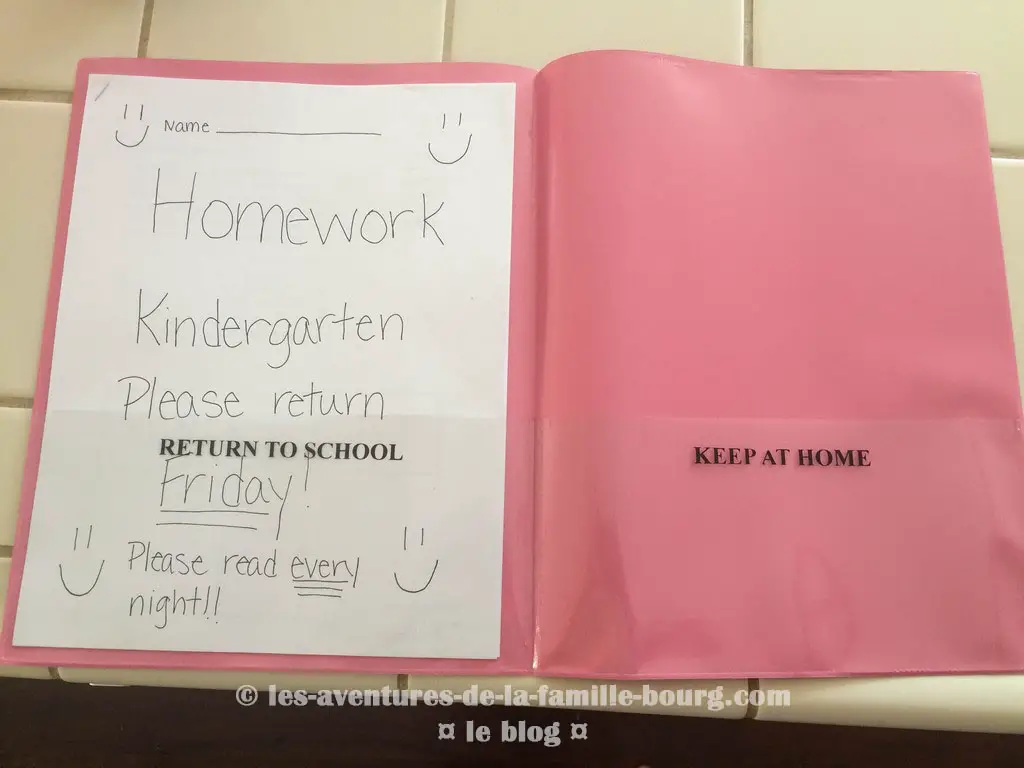 Name
Homework
Kindergarten
Please return
RETURN TO SCHOOL
Friday!
Please read every
night!!
KEEP AT HOME
© les-aventures-de-la-famille-bourg.com
¤ le blog ¤